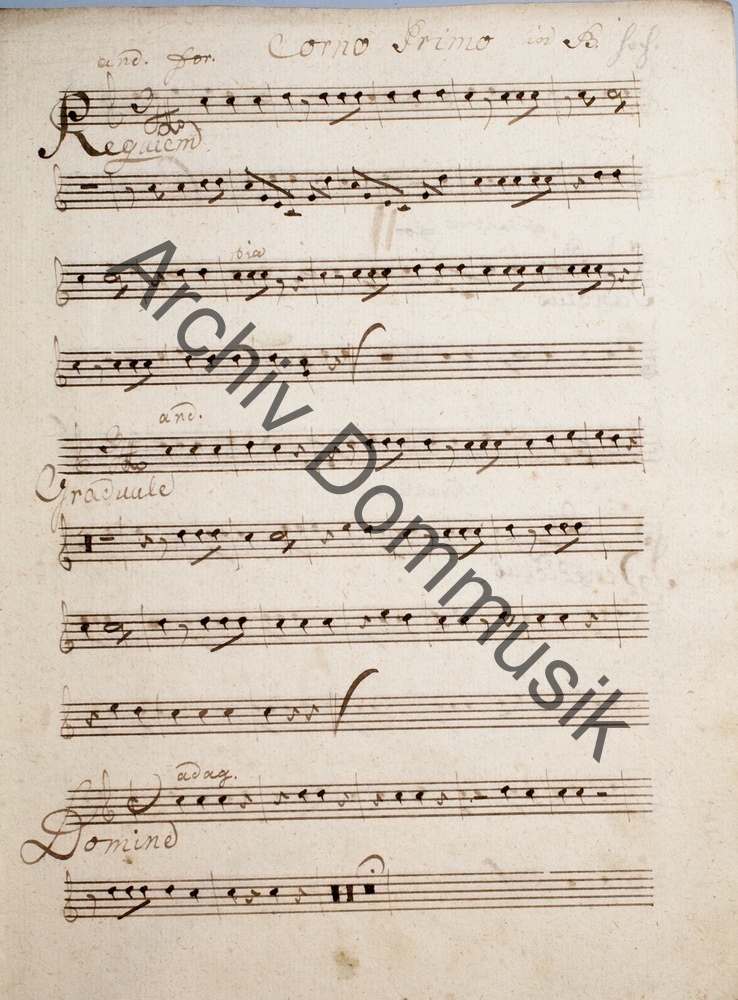 Corno Primo in B.
and. for.
Requiem
pia
and.
Graduale
adag.
Domine
Archiv Dommusik